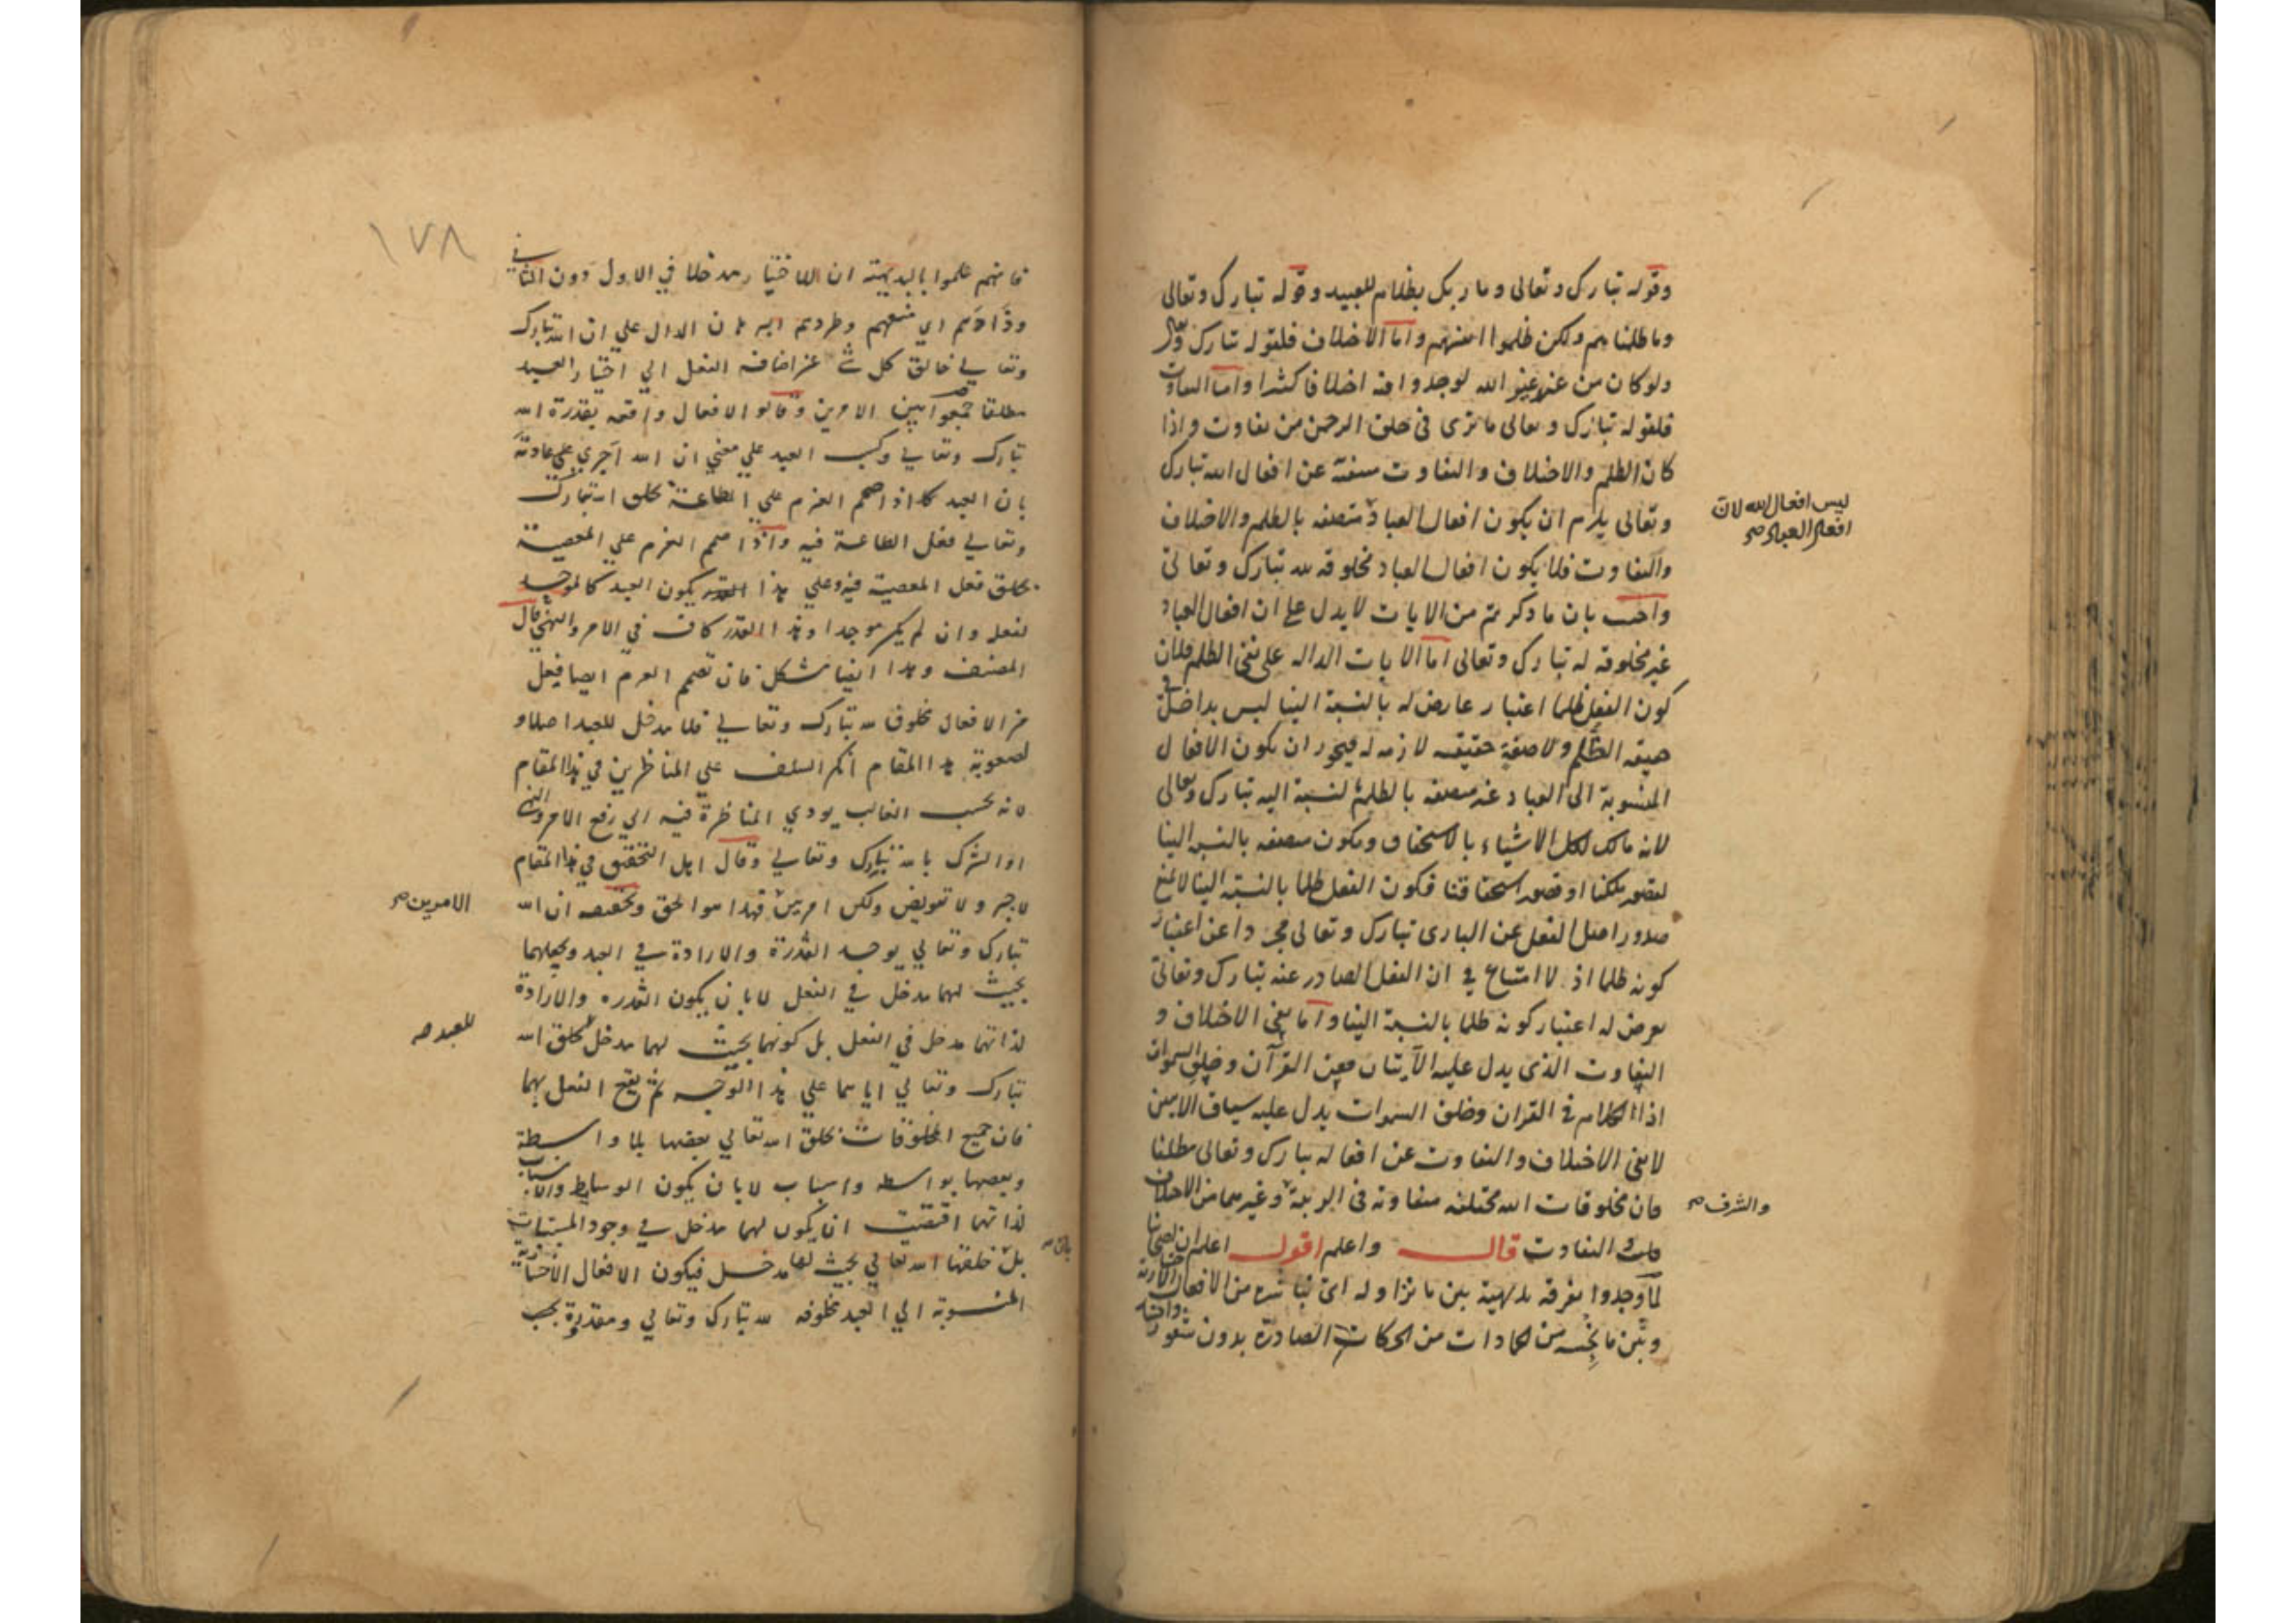 وقوله تبارك وتعالى وما ربك بظلام للعبيد وقوله تبارك وتعالى
وما ظلمناهم ولكن ظلموا انفسهم واما الاختلاف فلقوله تبارك وتعالى
ولو كان من عند غير الله لوجدوا فيه اختلافا كثيرا واما التفاوت
فلقوله تبارك وتعالى ما ترى في خلق الرحمن من تفاوت واذا
كان الظلم والاختلاف والتفاوت منتفية عن افعال الله تبارك
وتعالى يلزم ان يكون افعال العباد متصفه بالظلم والاختلاف
ليس افعال الله لان
افعال العباد صح
والتفاوت فلا يكون افعال العباد مخلوقه لله تبارك وتعالى
واجيب بان ما ذكرتم من الايات لا يدل على ان افعال العباد
غير مخلوقه له تبارك وتعالى اما الايات الداله على نفى الظلم فلان
كون الفعل ظلما اعتبار عارض له بالنسبة الينا ليس بداخل في
حقيقه الظلم ولا صفة حقيقيه لازمه له فيجوز ان يكون الافعال
المنسوبة الى العباد غير متصفه بالظلم لنسبة اليه تبارك وتعالى
لانه مالك لكل الاشياء بالاستحقاق ويكون متصفه بالنسبه الينا
لقصور ملكنا او قصور استحقاقنا فكون الفعل ظلما بالنسبة الينا لا يمنع
صدور اصل الفعل عن البارى تبارك وتعالى مجردا عن اعتبار
كونه ظلما اذ لا امتناع في ان الفعل الصادر عنه تبارك وتعالى
يعرض له اعتبار كونه ظلما بالنسبة الينا واما نفى الاختلاف و
التفاوت الذى يدل عليه الآيتان فعن القرآن وخلق السموات
اذ الكلام في القران وخلق السموات يدل عليه سياق الايتين
لا نفى الاختلاف والتفاوت عن افعاله تبارك وتعالى مطلقا
فان مخلوقات الله مختلفه متفاوته فى الرتبة وغيرهما من الاختلاف
والشرف صح
التفاوت قال واعلم اقول اعلم ان اصحابنا
لما وجدوا تفرقة بديهية بين ما نزاوله اى نباشره من الافعال الاختيارية
وبين ما نحسه من الجمادات من الحركات الصادرة بدون شعور واختيار
١٧٨
فانهم علموا بالبديهة ان للاختيار مدخلا في الاول دون الثاني
وذادهم اي منعهم وطردهم البرهان الدال علي ان الله تبارك
وتعالي خالق كل شئ عن اضافة الفعل الي اختيار العبد
مطلقا جمعوا بين الامرين وقالوا الافعال واقعه بقدرة الله
تبارك وتعالي وكسب العبد علي معني ان الله اجري عادته
بان العبد اذا صمم العزم علي الطاعة يخلق الله تبارك
وتعالي فعل الطاعة فيه واذا صمم العزم علي المعصية
يخلق فعل المعصية فيه وعلي هذا القدر يكون العبد كالموجد
لفعله وان لم يكن موجدا وهذا القدر كاف في الامر والنهي قال
المصنف وهذا ايضا مشكل فان تصميم العزم ايضا فعل
من الافعال مخلوق لله تبارك وتعالي فلا مدخل للعبد اصلا و
لصعوبة هذا المقام انكر السلف علي المناظرين في هذا المقام
لانه بحسب الغالب يودي المناظرة فيه الي رفع الامر والنهي
او الشرك بالله تبارك وتعالي وقال اهل التحقيق في هذا المقام
لا جبر ولا تفويض ولكن امر بين فهذا هو الحق وتحقيقه ان الله
الامرين صح
تبارك وتعالي يوجد القدرة والارادة في العبد ويجعلهما
بحيث لهما مدخل في الفعل لا بان يكون القدره والارادة
لذاتهما مدخل في الفعل بل كونهما بحيث لهما مدخل بخلق الله
للعبد صح
تبارك وتعالي اياهما علي هذا الوجه ثم يقع الفعل بهما
فان جميع المخلوقات بخلق الله تعالي بعضها بلا واسطة
وبعضها بواسطه واسباب لا بان يكون الوسايط والاسباب
لذاتهما اقتضت ان يكون لهما مدخل في وجود المسببات
بل خلقها الله تعالي بحيث لها مدخل فيكون الافعال الاختيارية
المنسوبة الي العبد مخلوقه لله تبارك وتعالي ومقدورة